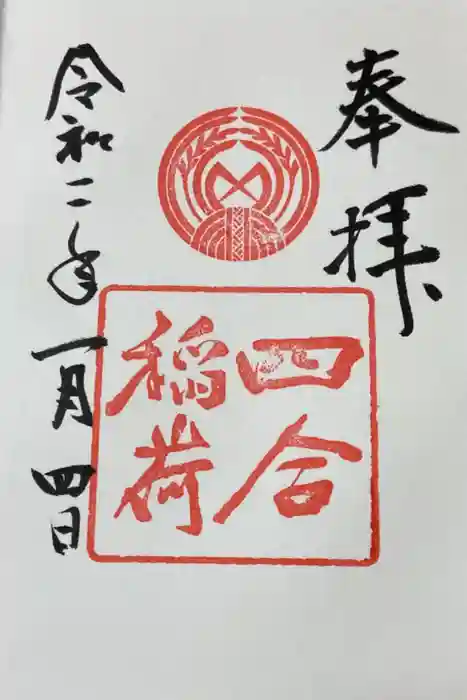 奉拝
四合
稲荷
令和二年一月四日